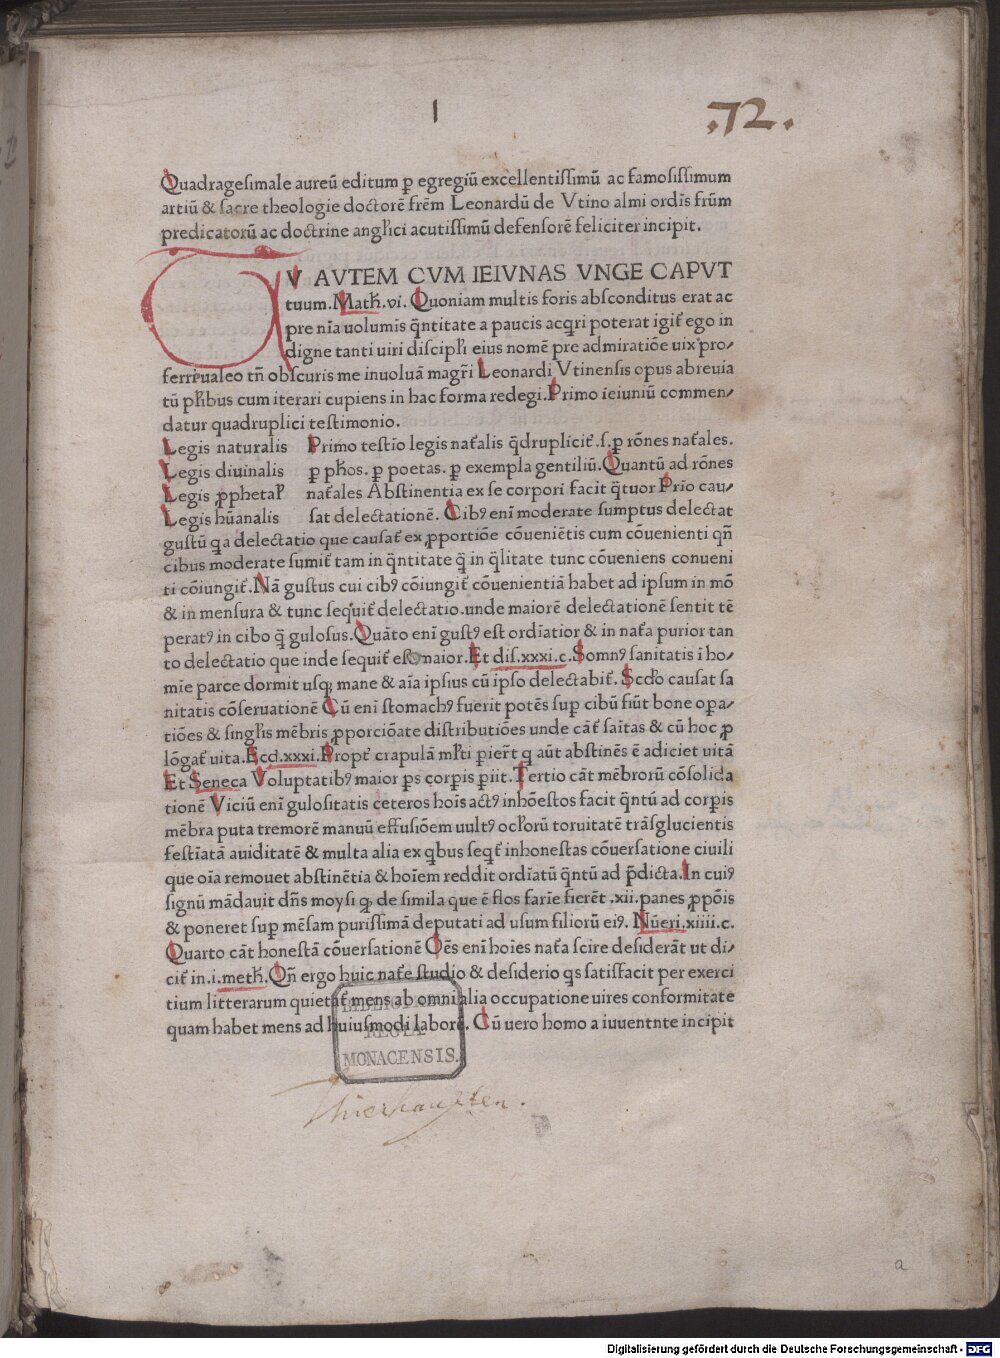 I
.72.
Quadragesimale aureū editum ꝑ egregiū excellentissimū ac famosissimum
artiū & sacre theologie doctorē frēm Leonardū de Vtino almi ordīs frūm
predicatorū ac doctrine angl̄ici acutissimū defensorē feliciter incipit.
TV AVTEM CVM IEIVNAS VNGE CAPVT
tuum. Math̄.vi. Quoniam multis foris absconditus erat ac
pre nīa uolumīs q̄ntitate a paucis acq̄ri poterat igit̄ ego in
digne tanti uiri discipl̄i eius nomē pre admiratiōe uix pro/
ferre ualeo tn̄ obscuris me inuoluā magr̄i Leonardi Vtinensis opus abreuia
tū pl̄ribus cum iterari cupiens in hac forma redegi. Primo ieiuniū commen/
datur quadruplici testimonio.
Legis naturalis Primo testīo legis nat̄alis q̄druplicit̄ .s. ꝑ rōnes nat̄ales.
Legis diuinalis ꝑ ph̄os. ꝑ poetas. ꝑ exempla gentiliū. Quantū ad rōnes
Legis ꝓphetal̄ nat̄ales Abstinentia ex se corpori facit q̄tuor Prīo cau/
Legis hūanalis sat delectationē. Cibꝰ enī moderate sumptus delectat
gustū q̄a delectatio que causat̄ ex ꝓportiōe cōueniētis cum cōuenienti qn̄
cibus moderate sumit̄ tam in q̄ntitate q̄ in q̄litate tunc cōueniens conueni
ti cōiungit̄. Nā gustus cui cibꝰ cōiungit̄ cōuenientiā habet ad ipsum in mō
& in mensura & tunc seq̄uit̄ delectatio. unde maiorē delectationē sentit tē
peratꝰ in cibo q̄ gulosus. Quāto enī gustꝰ est ordīatior & in nat̄a purior tan
to delectatio que inde sequit̄ est maior. Et dis.xxxi.c. Somnꝰ sanitatis ī ho/
mīe parce dormit usq; mane & aīa ipsius cū ipso delectabit̄. Scd̄o causat sa
nitatis cōseruationē Cū enī stomachꝰ fuerit potēs suꝑ cibū fiūt bone oꝑa/
tiōes & singl̄is mēbris ꝓporciōate distributiōes unde cāt̄ saītas & cū hoc ꝓ
lōgat̄ uita. Eccl̄.xxxi. Propt̄ crapulā ml̄ti pier̄t q aūt abstinēs ē adiciet uitā
Et Seneca Voluptatibꝰ maior ps corꝑis ꝑiit. Tertio cāt mēbrorū cōsolida
tionē Viciū enī gulositatis ceteros hoīs actꝰ inhōestos facit q̄ntū ad corꝑis
mēbra puta tremorē manuū effusiōem uultꝰ ocl̄orū toruitatē trāsglucientis
festīatā auiditatē & multa alia ex qbus seqt̄ inhonestas cōuersatione ciuili
que oīa remouet abstinētia & hoīem reddit ordiatū q̄ntū ad p̄dicta. In cuiꝰ
signū mādauit dn̄s moysi q; de simila que ē flos farīe fierēt .xii. panes ꝓpōis
& poneret suꝑ mēsam purissimā deputati ad usum filiorū eiꝰ. Nūeri.xiiii.c.
Quarto cāt honestā cōuersationē Oēs enī hoīes nat̄a scire desiderāt ut di/
cit̄ in .i.meth̄. Qn̄ ergo huic nat̄e studio & desiderio qs satisfacit per exerci
tium litterarum quietat̄ mens ab omni alia occupatione uires conformitate
quam habet mens ad huiusmodi laborē. Cū uero homo a iuuentnte incipit
BIBLIOTHECA
REGIA
MONACENSIS.
Thierhaupten.
a
Digitalisierung gefördert durch die Deutsche Forschungsgemeinschaft - DFG